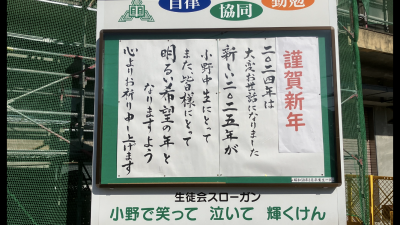 自律
協同
勤勉
謹賀新年
二〇二四年は
大変お世話になりました
新しい二〇二五年が
小野中生にとって
また皆様にとって
明るい希望の年と
なりますよう
心よりお祈り申し上げます
生徒会スローガン
小野で笑って 泣いて 輝くけん